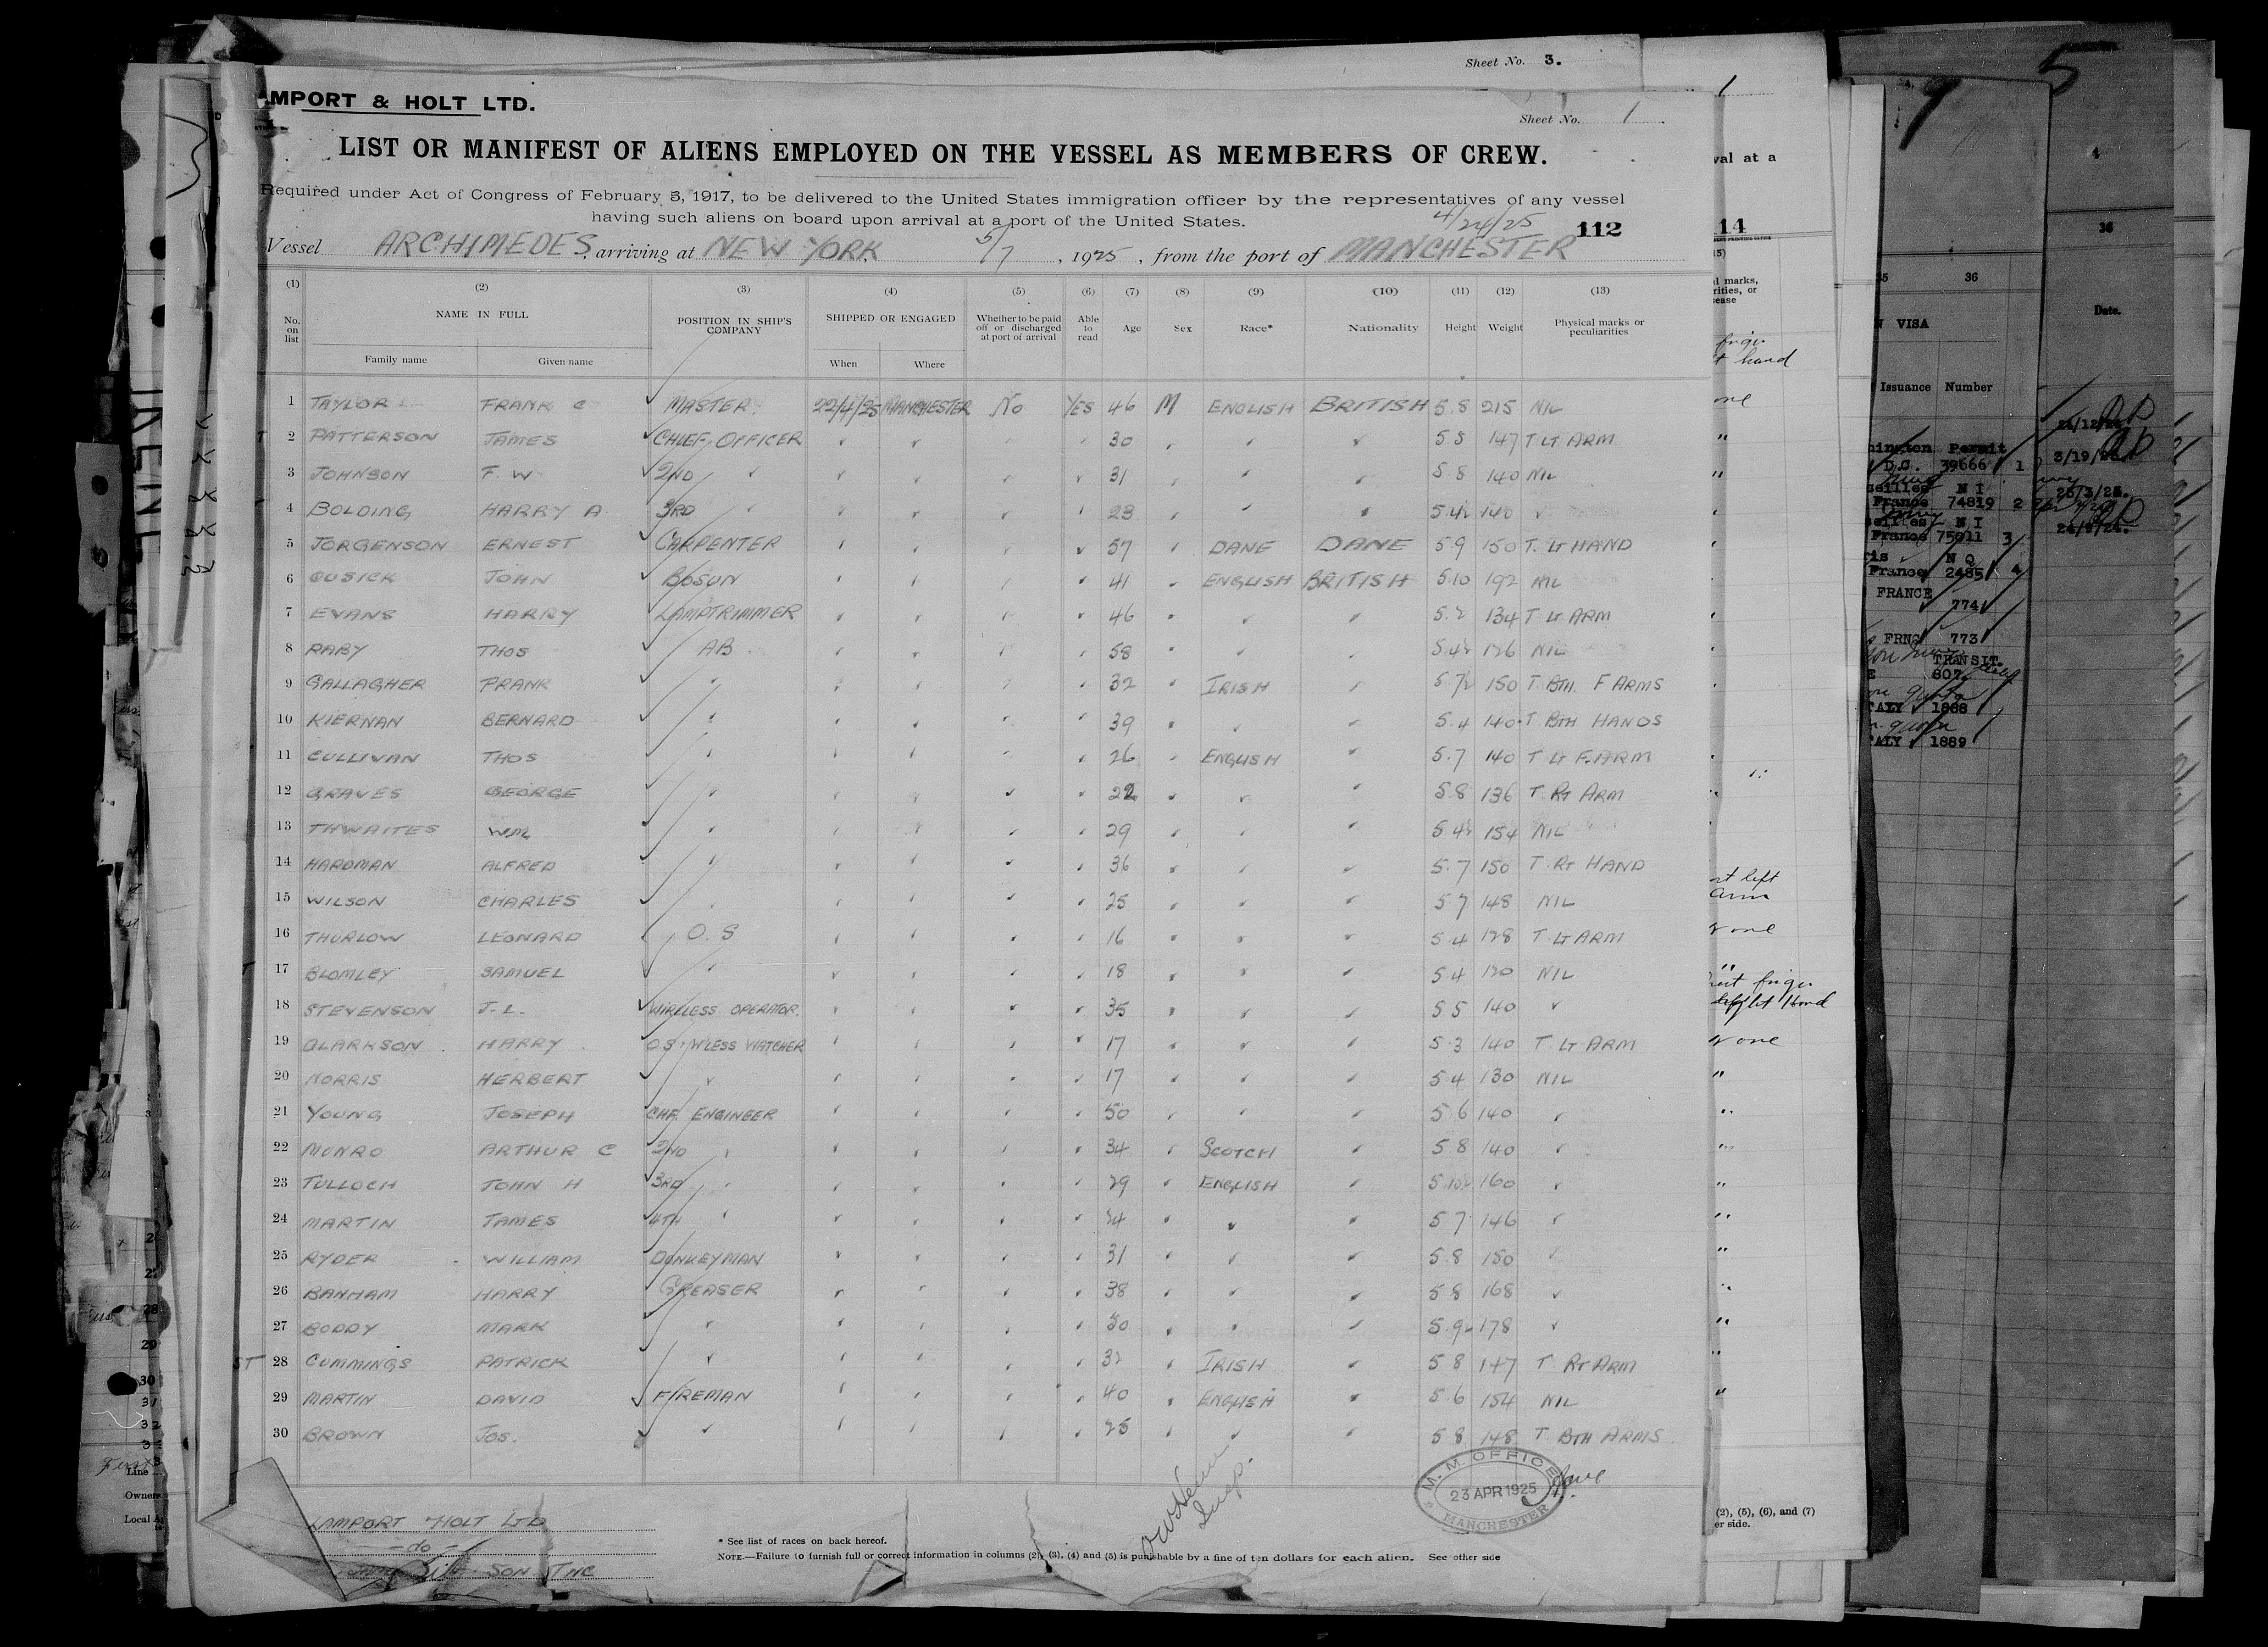 Sheet No. 3.
MPORT & HOLT LTD.
Sheet No. 1
LIST OR MANIFEST OF ALIENS EMPLOYED ON THE VESSEL AS MEMBERS OF CREW.
Required under Act of Congress of February 5, 1917, to be delivered to the United States immigration officer by the representatives of any vessel
having such aliens on board upon arrival at a port of the United States.
4/24/25 112
Vessel ARCHIMEDES arriving at NEW YORK, 5/7, 1925, from the port of MANCHESTER
(1) (2) (3) (4) (5) (6) (7) (8) (9) (10) (11) (12) (13)
No. on list NAME IN FULL POSITION IN SHIP'S COMPANY SHIPPED OR ENGAGED Whether to be paid off or discharged at port of arrival Able to read Age Sex Race* Nationality Height Weight Physical marks or peculiarities
Family name Given name When Where
1 TAYLOR FRANK C MASTER 22/4/25 MANCHESTER No YES 46 M ENGLISH BRITISH 5 8 215 NIL
2 PATTERSON JAMES CHIEF OFFICER 30 5 5 147 T LT ARM
3 JOHNSON F. W 2ND 31 5.8 140 NIL
4 BOLDING HARRY A 3RD 23 5.4½ 140
5 JORGENSON ERNEST CARPENTER 57 DANE DANE 5 9 150 T. LT HAND
6 CUSICK JOHN BOSUN 41 ENGLISH BRITISH 5.10 192 NIL
7 EVANS HARRY LAMPTRIMMER 46 5.2 134 T LT ARM
8 RABY THOS AB 58 5.4½ 126 NIL
9 GALLAGHER FRANK 32 IRISH 5 7½ 150 T BTH. F ARMS
10 KIERNAN BERNARD 39 5.4 140 T BTH HANDS
11 CULLIVAN THOS 26 ENGLISH 5.7 140 T LT F.ARM
12 GRAVES GEORGE 22 5.8 136 T. RT ARM
13 THWAITES WM 29 5 4½ 154 NIL
14 HARDMAN ALFRED 36 5.7 150 T. RT HAND
15 WILSON CHARLES 25 5 7 148 NIL
16 THURLOW LEONARD O. S 16 5.4 128 T LT ARM
17 BLOMLEY SAMUEL 18 5 4 120 NIL
18 STEVENSON J. L. WIRELESS OPERATOR. 35 5 5 140
19 CLARKSON HARRY OS. W'LESS WATCHER 17 5 3 140 T LT ARM
20 NORRIS HERBERT 17 5.4 130 NIL
21 YOUNG JOSEPH CHF. ENGINEER 50 5 6 140
22 MUNRO ARTHUR C 2ND 34 SCOTCH 5 8 140
23 TULLOCH JOHN H 3RD 29 ENGLISH 5.10½ 160
24 MARTIN JAMES 4TH 24 5 7 146
25 RYDER WILLIAM DONKEYMAN 31 5.8 150
26 BANHAM HARRY GREASER 38 5 8 168
27 BODDY MARK 30 5.9 178
28 CUMMINGS PATRICK 32 IRISH 5 8 147 T RT ARM
29 MARTIN DAVID FIREMAN 40 ENGLISH 5 6 154 NIL
30 BROWN JOS. 25 5 8 148 T BTH ARMS
M. M. OFFICE
23 APR 1925
MANCHESTER
LAMPORT HOLT LTD
- do -
SON INC
Insp.
* See list of races on back hereof.
NOTE.—Failure to furnish full or correct information in columns (2), (3), (4) and (5) is punishable by a fine of ten dollars for each alien. See other side
val at a
14
hand
one
left
Arm
one
finger
Hand
one
(2), (5), (6), and (7)
er side.
5
4
36
Date.
35 36
VISA
Issuance Number
Permit
D.C. 39666 1
3/19/25
N I
France 74819 2
25/3/25.
N I
France 75011 3
24/9/24.
N Q
France 2485 4
FRANCE
774
FRNC 773
TRANSIT.
607
TALY 1888
ALY 1889
28
29
30
31
32
Line
Owners
Local A